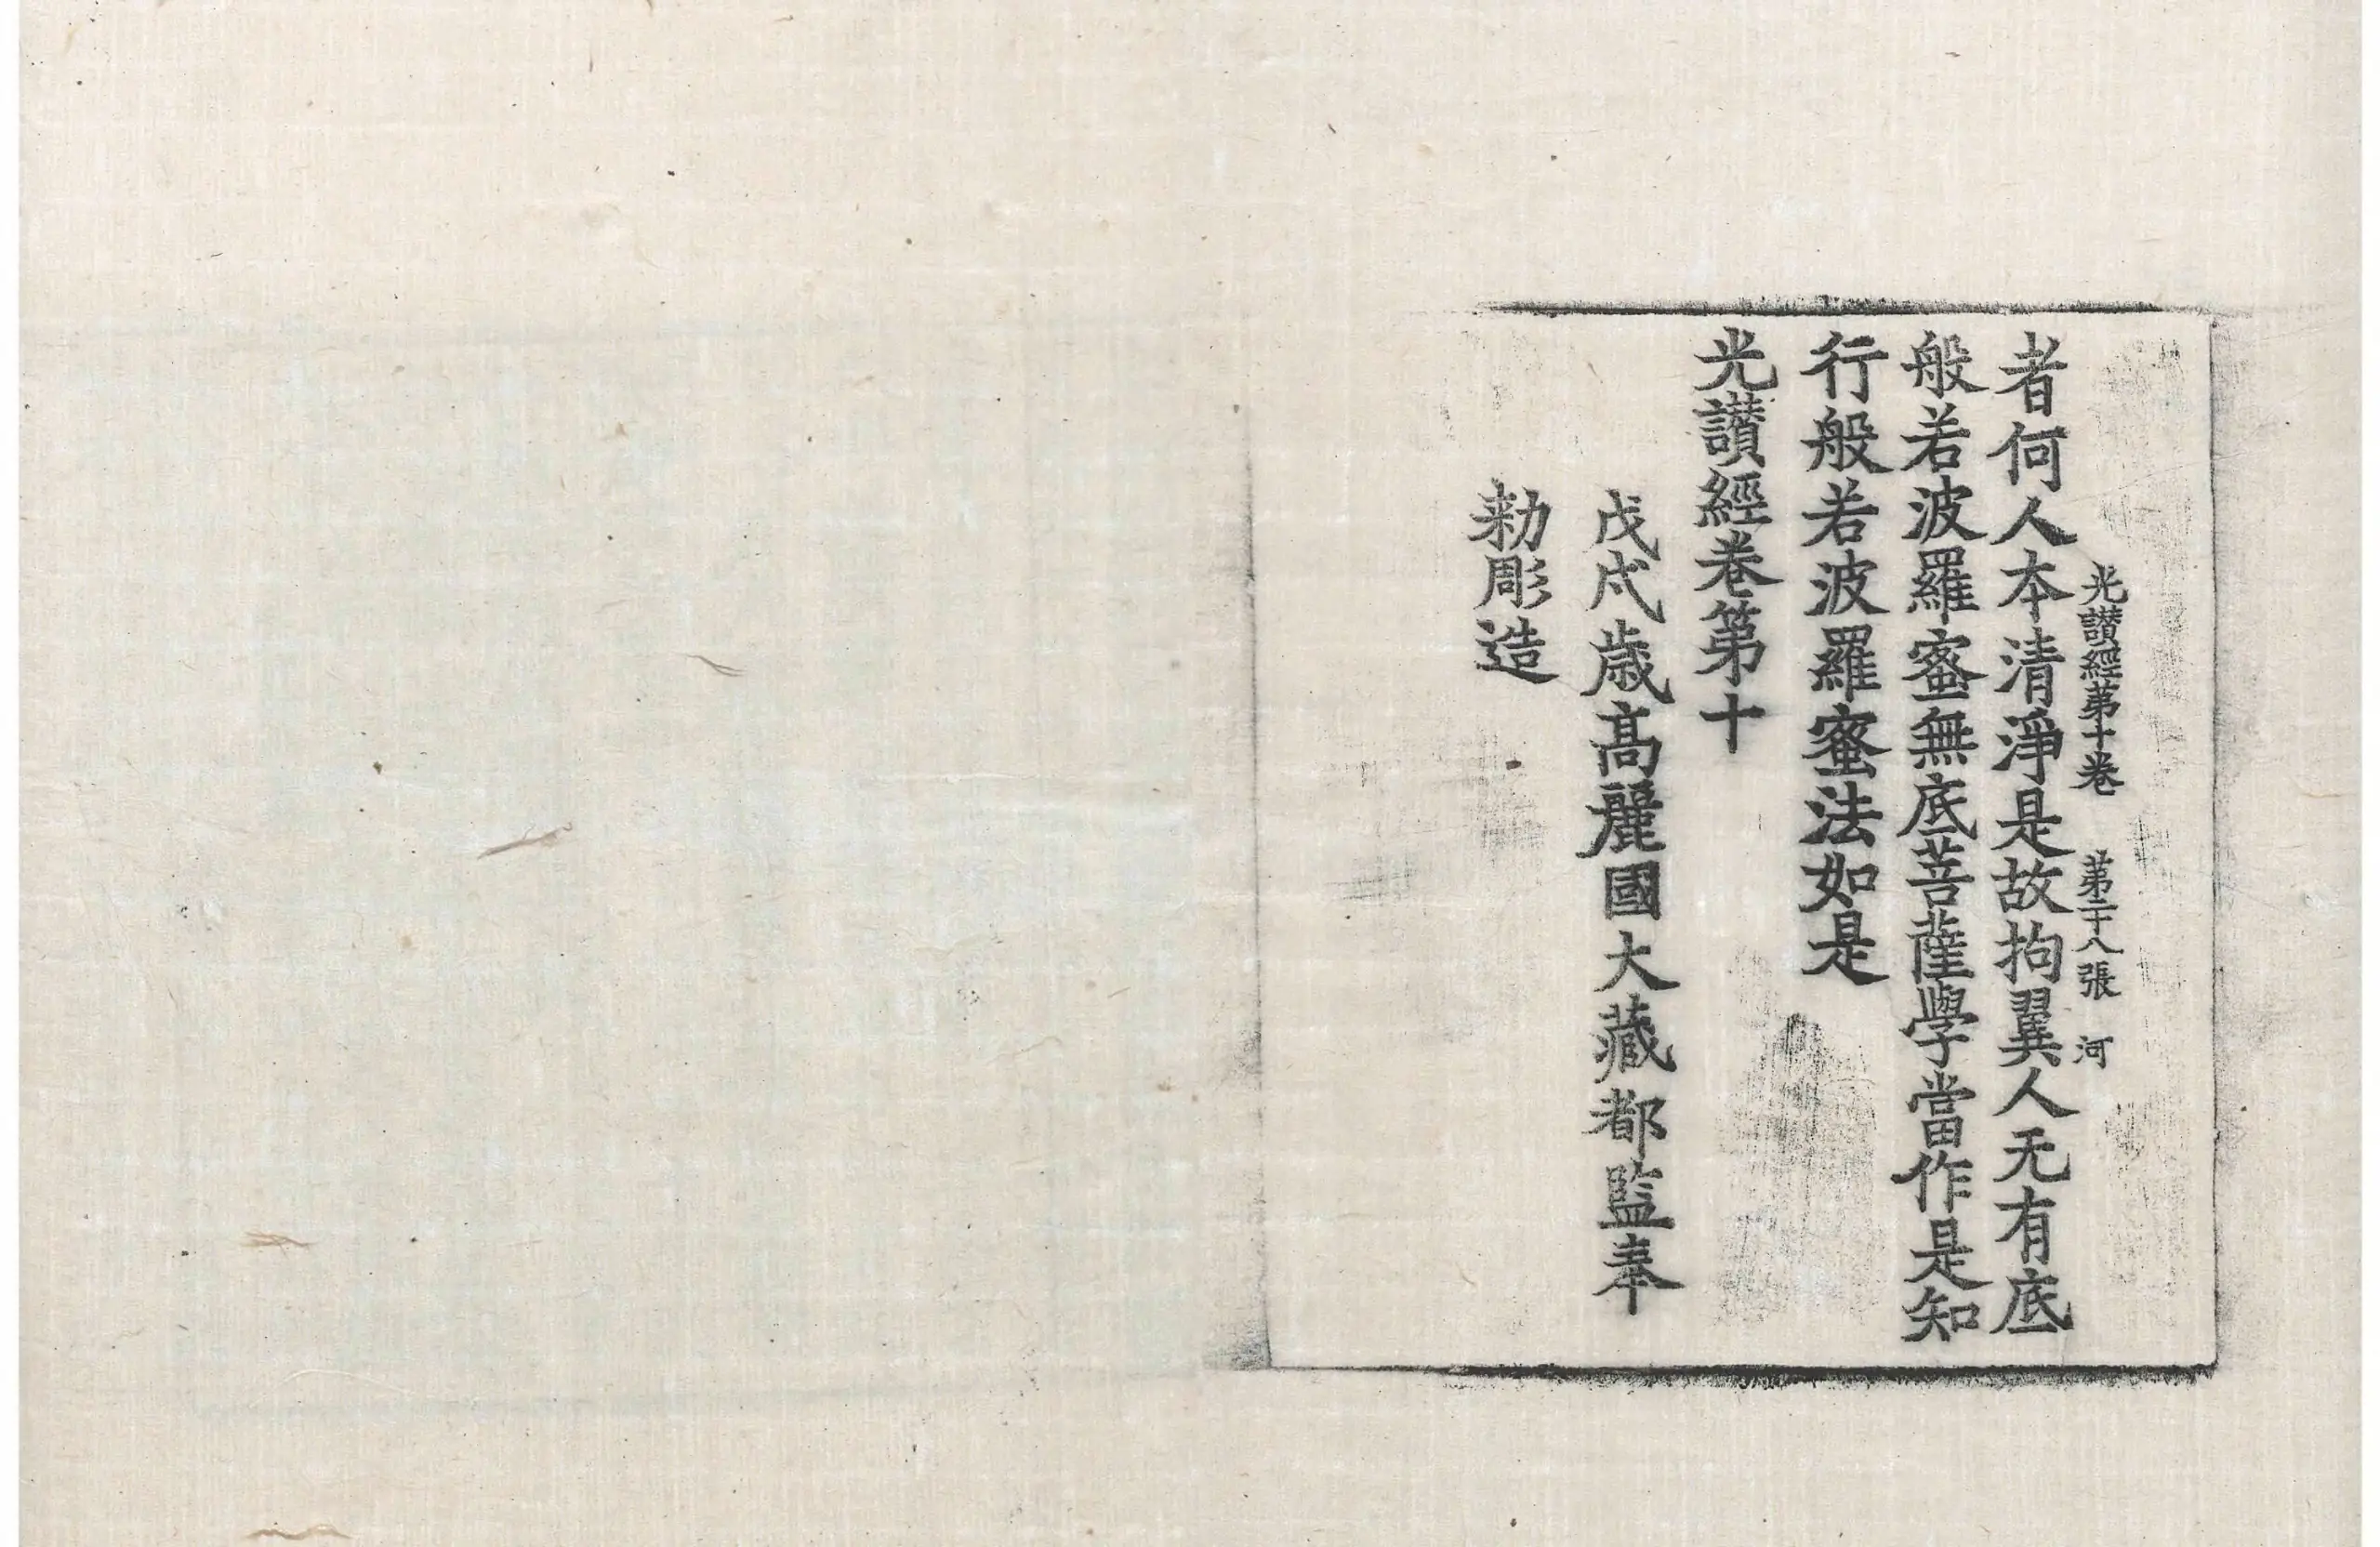 光讃經第十卷　第二十八張　河
者何人本清淨是故拘翼人无有底
般若波羅蜜無底菩薩學當作是知
行般若波羅蜜法如是
光讃經卷第十
戊戌歲高麗國大藏都監奉
勅彫造